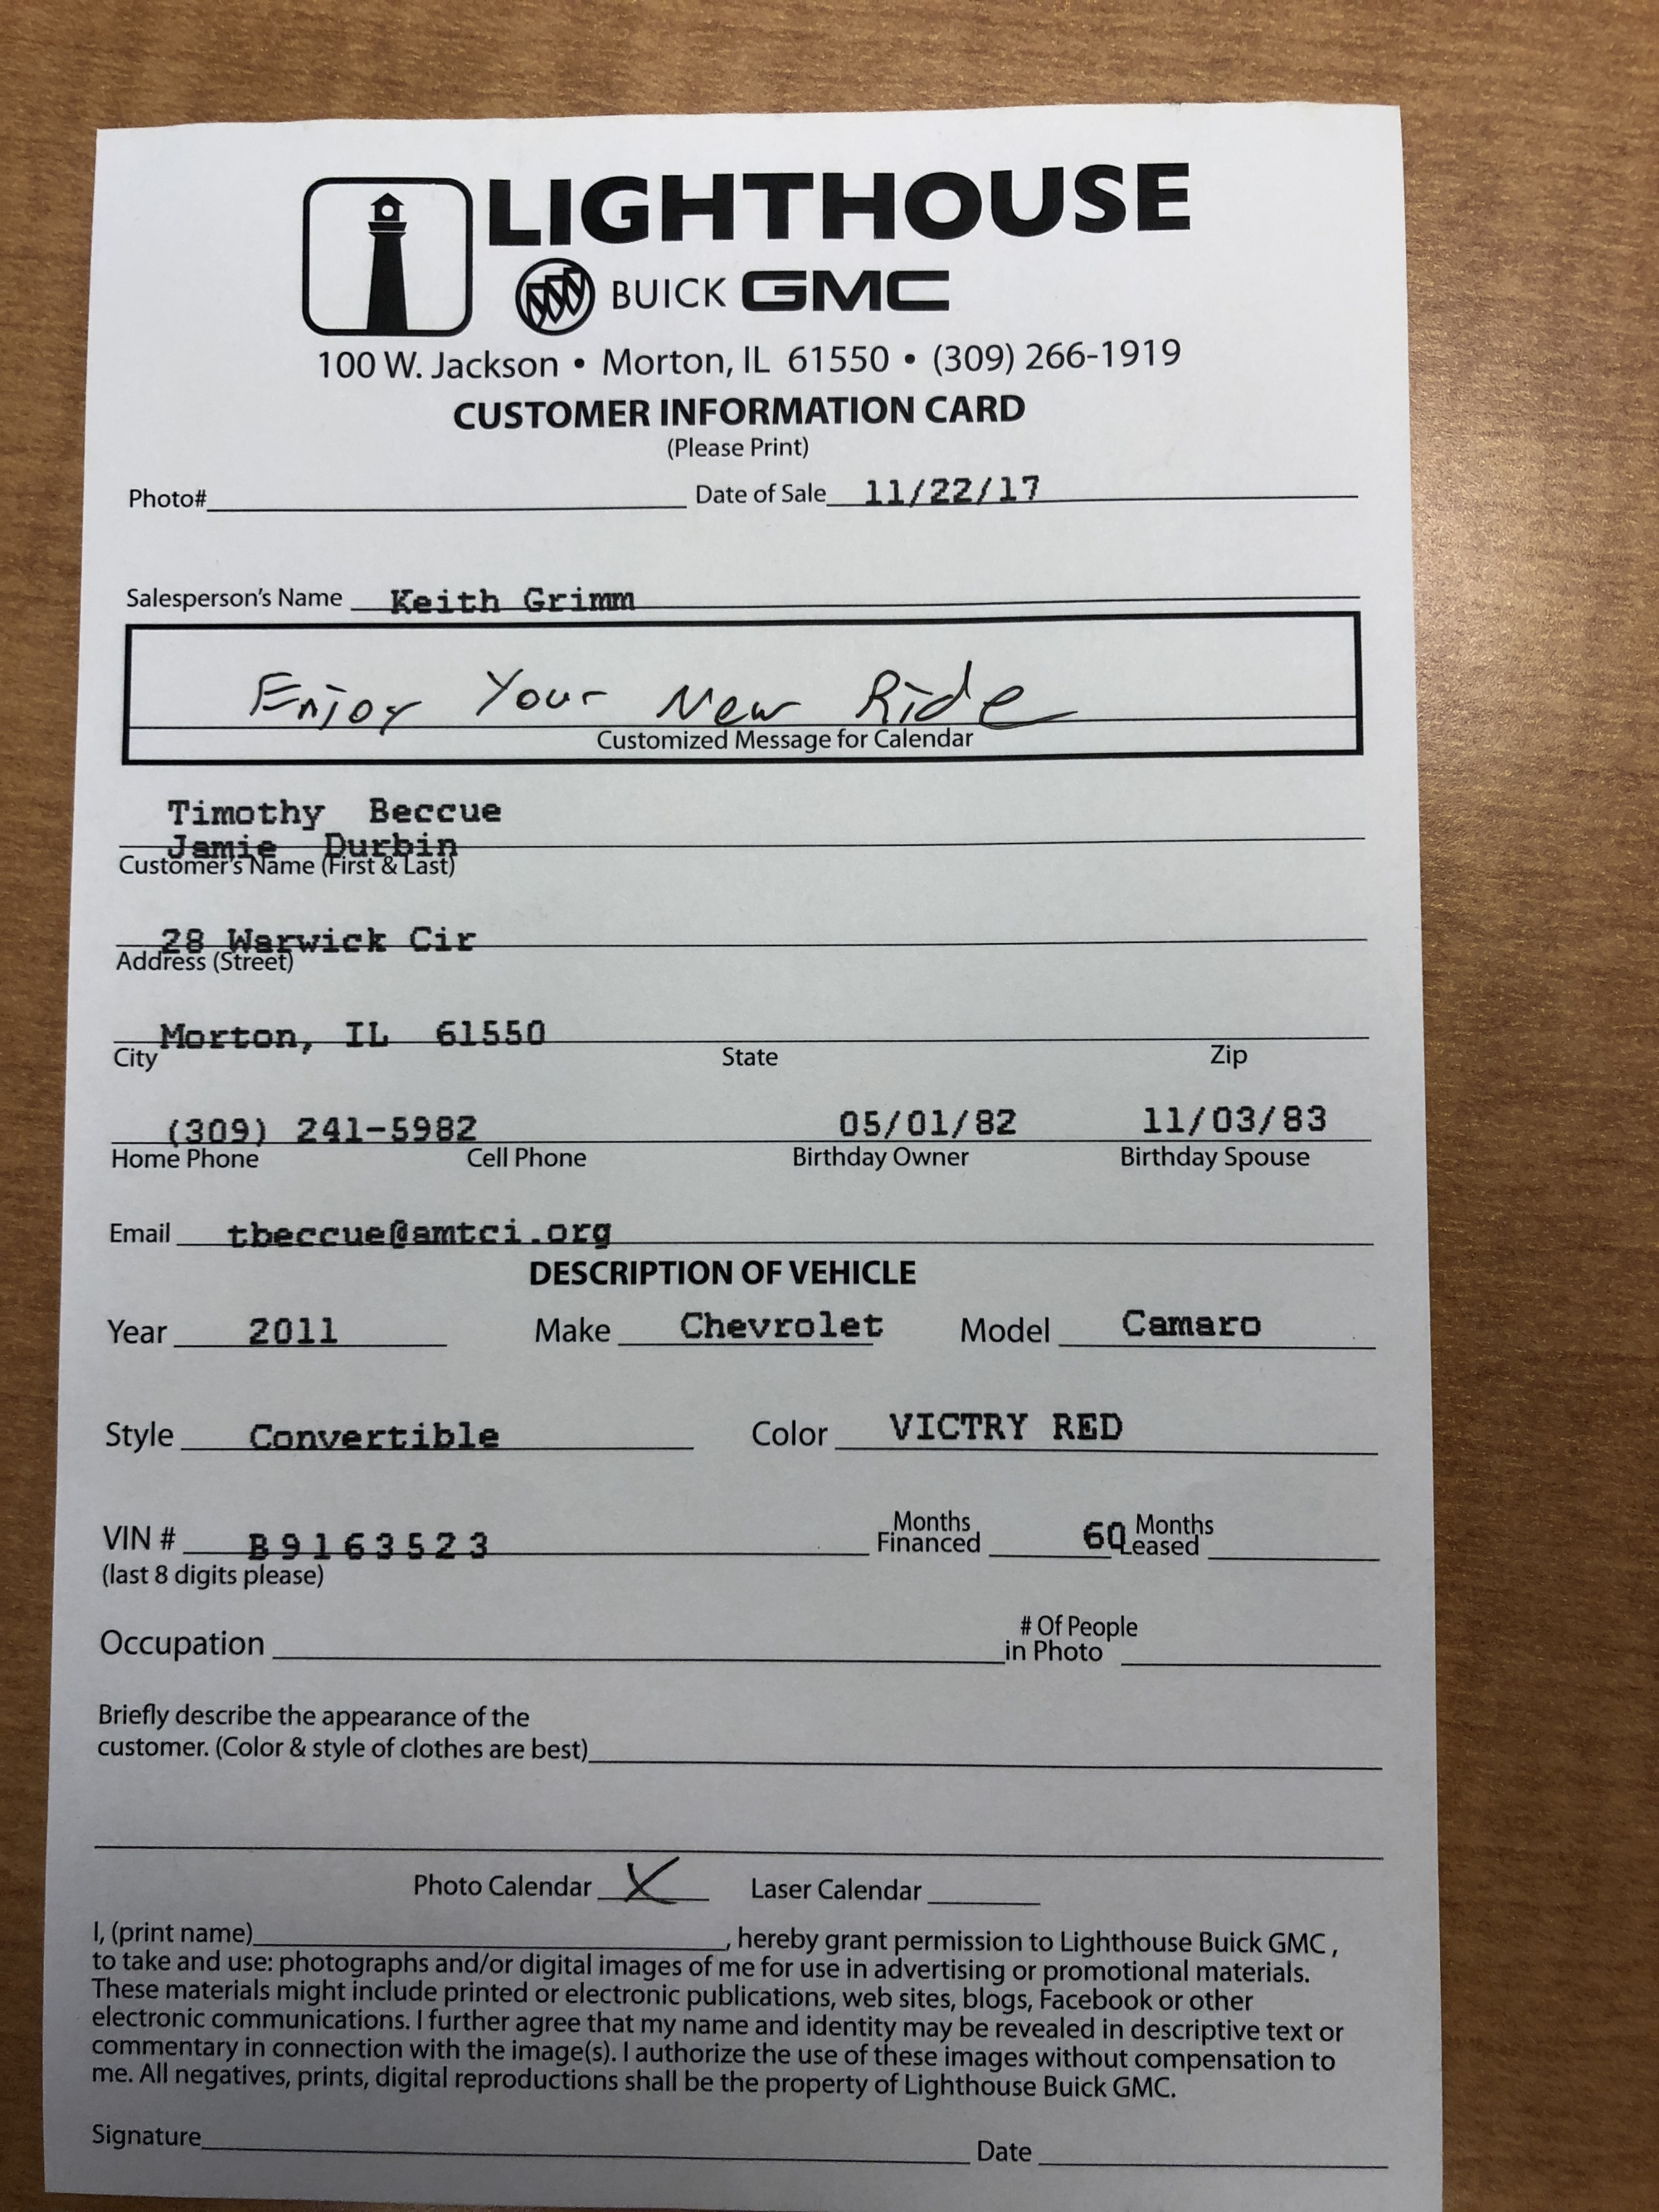 LIGHTHOUSE
BUICK GMC
100 W. Jackson • Morton, IL 61550 • (309) 266-1919
CUSTOMER INFORMATION CARD
(Please Print)
Photo# Date of Sale 11/22/17
Salesperson's Name Keith Grimm
Enjoy Your New Ride
Customized Message for Calendar
Timothy Beccue
Jamie Durbin
Customer's Name (First & Last)
28 Warwick Cir
Address (Street)
Morton, IL 61550
City State Zip
(309) 241-5982 05/01/82 11/03/83
Home Phone Cell Phone Birthday Owner Birthday Spouse
Email tbeccue@amtci.org
DESCRIPTION OF VEHICLE
Year 2011 Make Chevrolet Model Camaro
Style Convertible Color VICTRY RED
VIN # B9163523 Months Financed 60 Months Leased
(last 8 digits please)
Occupation # Of People in Photo
Briefly describe the appearance of the
customer. (Color & style of clothes are best)
Photo Calendar X Laser Calendar
I, (print name) , hereby grant permission to Lighthouse Buick GMC ,
to take and use: photographs and/or digital images of me for use in advertising or promotional materials.
These materials might include printed or electronic publications, web sites, blogs, Facebook or other
electronic communications. I further agree that my name and identity may be revealed in descriptive text or
commentary in connection with the image(s). I authorize the use of these images without compensation to
me. All negatives, prints, digital reproductions shall be the property of Lighthouse Buick GMC.
Signature Date